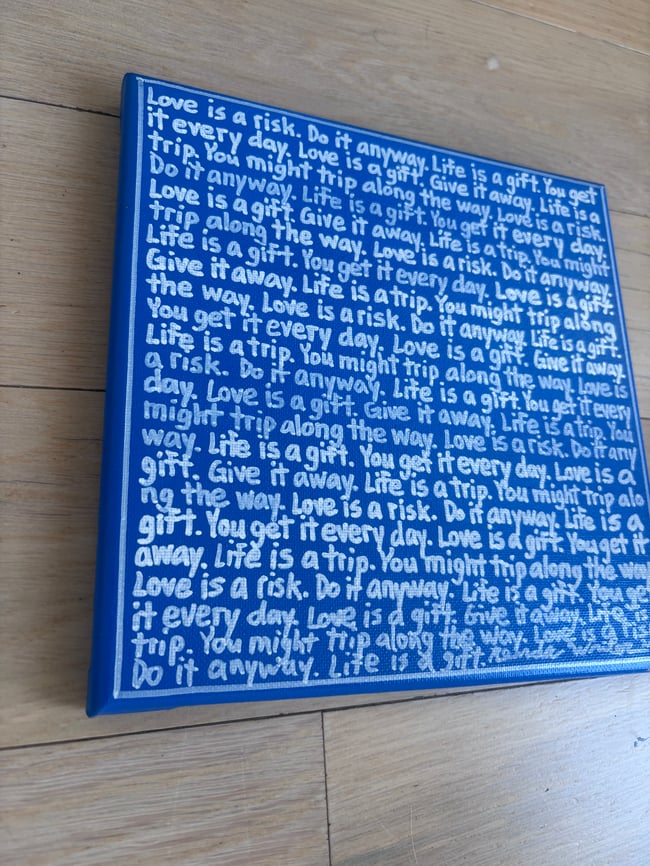 Love is a risk. Do it anyway. Life is a gift. You get
it every day. Love is a gift. Give it away. Life is a
trip. You might trip along the way. Love is a risk.
Do it anyway. Life is a gift. You get it every day.
Love is a gift. Give it away. Life is a trip. You might
trip along the way. Love is a risk. Do it anyway.
Life is a gift. You get it every day. Love is a gift.
Give it away. Life is a trip. You might trip along
the way. Love is a risk. Do it anyway. Life is a gift.
You get it every day. Love is a gift. Give it away.
Life is a trip. You might trip along the way. Love is
a risk. Do it anyway. Life is a gift. You get it every
day. Love is a gift. Give it away. Life is a trip. You
might trip along the way. Love is a risk. Do it any
way. Life is a gift. You get it every day. Love is a
gift. Give it away. Life is a trip. You might trip alo
ng the way. Love is a risk. Do it anyway. Life is a
gift. You get it every day. Love is a gift. You get it
away. Life is a trip. You might trip along the way
Love is a risk. Do it anyway. Life is a gift. You ge
it every day. Love is a gift. Give it away. Life is
trip. You might trip along the way. Love is a ris
Do it anyway. Life is a gift.